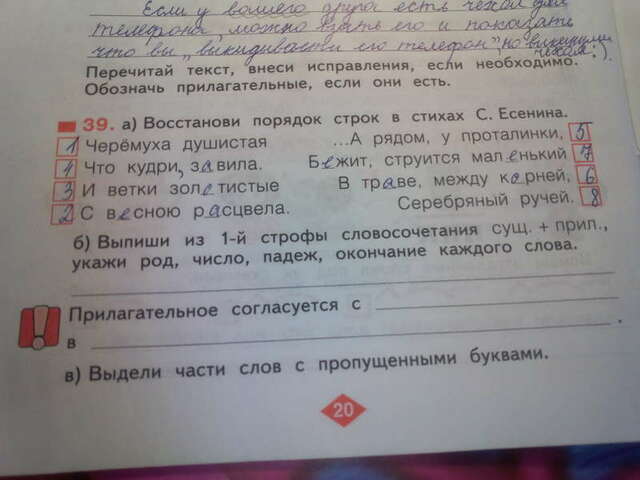 Если у вашего друга есть чехол для
телефона, можно взять его и показать
что вы "выкидываете его телефон", но выкинули чехол:).
Перечитай текст, внеси исправления, если необходимо.
Обозначь прилагательные, если они есть.
39. а) Восстанови порядок строк в стихах С. Есенина.
1 Черёмуха душистая ...А рядом, у проталинки, 5
4 Что кудри, завила. Бежит, струится маленький 7
3 И ветки золотистые В траве, между корней, 6
2 С весною расцвела. Серебряный ручей. 8
б) Выпиши из 1-й строфы словосочетания сущ. + прил.,
укажи род, число, падеж, окончание каждого слова.
Прилагательное согласуется с
в .
в) Выдели части слов с пропущенными буквами.
20